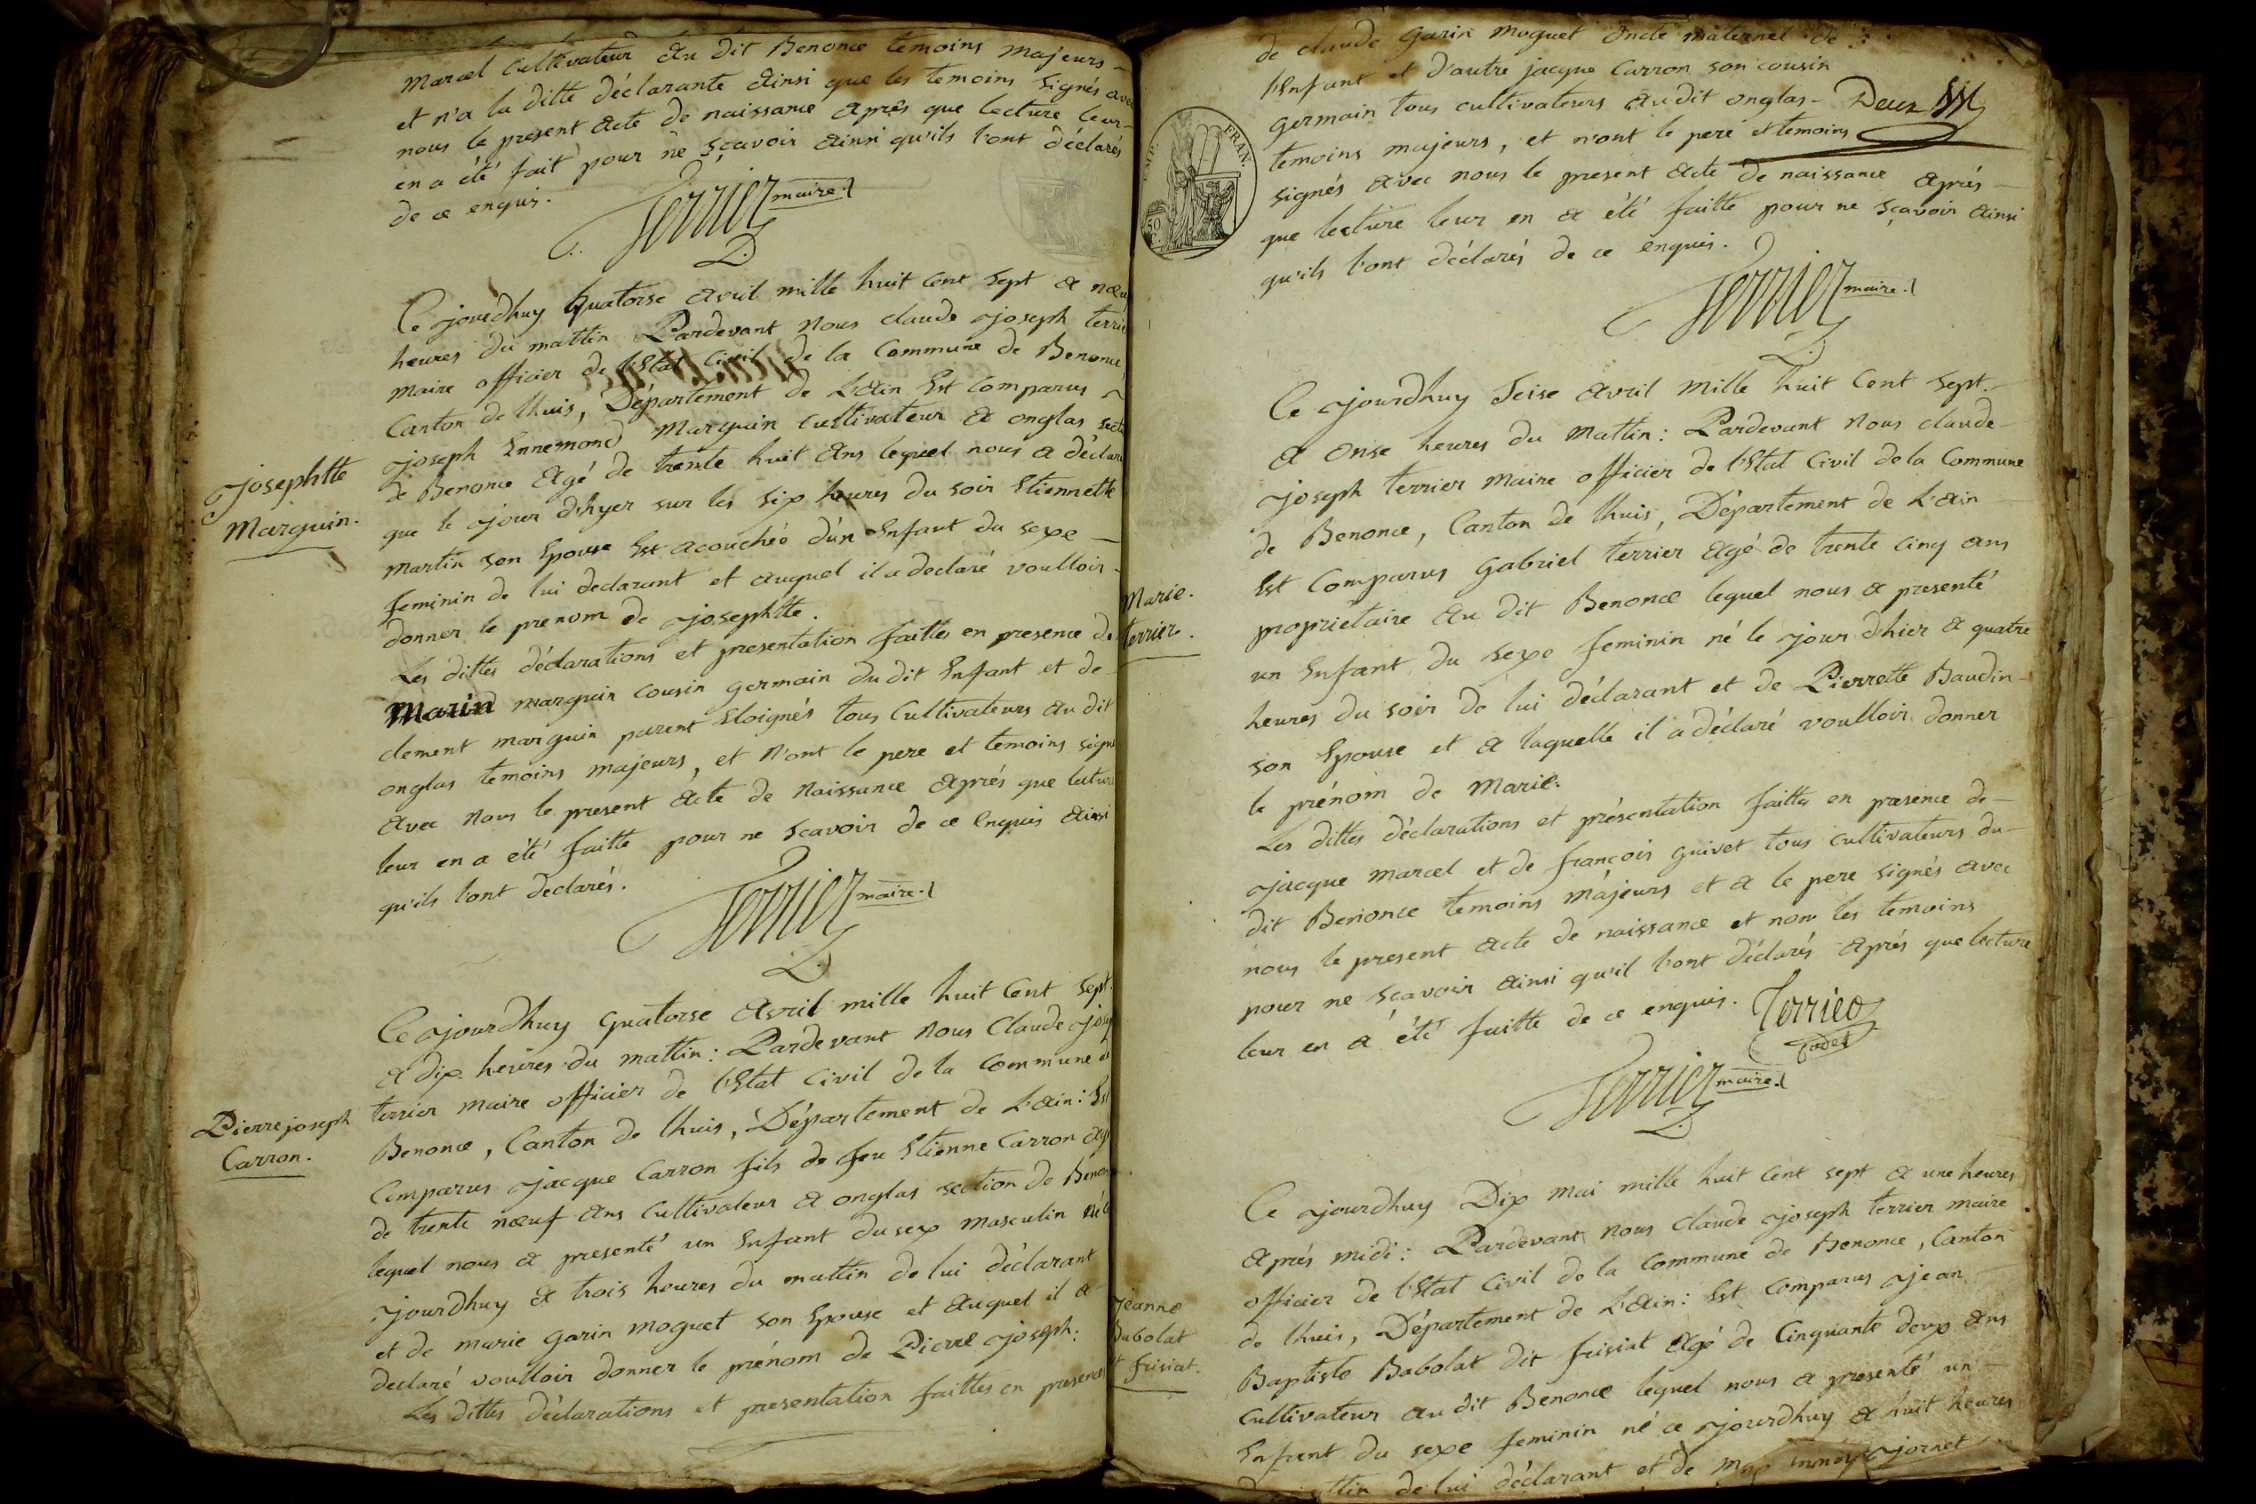 Marcel Cultivateur au dit Benonce temoins majeurs
et n'a la ditte déclarante ainsi que les temoins signés avec
nous le present acte de naissance après que lecture leur
en a été fait pour ne sçavoir ainsi qu'ils l'ont déclarés
de ce enquis.
Terrier maire.
Josephtte
Marguin.
Ce jourdhuy quatorse avril mille huit cent sept a nœuf
heures du mattin Pardevant Nous claude joseph terrier
maire officier de l'Etat Civil de la Commune de Benonce,
Canton de lhuis, Département de L'ain Est Comparus
joseph Ennemond Marguin cultivateur a onglas section
de Benonce agé de trente huit ans lequel nous a déclaré
que le jour d'hyer sur les six heures du soir Etiennette
Martin son Epouse Est acouchée d'un Enfant du sexe
feminin de lui declarant et auquel il a declaré voulloir
donner le prenom de Josephtte.
Les dittes déclarations et presentation faittes en presence de
Marin marguin cousin germain du dit Enfant et de
clement marguin parent Eloignés tous Cultivateurs au dit
onglas temoins majeurs, et n'ont le pere et temoins signé
avec nous le present acte de Naissance après que lecture
leur en a été faitte pour ne scavoir de ce enquis ainsi
qu'ils l'ont declarés.
Terrier maire.
Pierre joseph
Carron.
Ce jourdhuy quatorse avril mille huit Cent Sept.
a dix heures du mattin: Pardevant Nous Claude joseph
terrier maire officier de l'Etat Civil de la Commune de
Benonce, Canton de lhuis, Département de L'ain: Est
Comparus jacque Carron fils de feu Etienne Carron agé
de trente nœuf ans Cultivateur a onglas section de Benonce
lequel nous a presenté un Enfant du sexe masculin né le
jourdhuy a trois heures du mattin de lui déclarant
et de marie garin moguet son Epouse et auquel il a
declaré voulloir donner le prénom de Pierre joseph:
Les dittes déclarations et presentation faittes en presence
de claude garin moguet oncle maternel de
l'Enfant et d'autre jacque Carron son cousin
germain tous cultivateurs au dit onglas- Deux
temoins majeurs, et n'ont le pere et temoins
signés avec nous le present acte de naissance après
que lecture leur en a été faitte pour ne sçavoir ainsi
qu'ils l'ont déclarés de ce enquis.
FRAN.
50
C.
Terrier maire.
Marie.
terrier.
Ce jourdhuy Seise avril mille huit Cent Sept.
a onse heures du mattin: Pardevant Nous claude
joseph terrier maire officier de l'Etat Civil de la Commune
de Benonce, Canton de lhuis, Département de L'ain
Est Comparus gabriel terrier agé de trente cinq ans
proprietaire au dit Benonce lequel nous a presenté
un Enfant du sexe feminin né le jour d'hier a quatre
heures du soir de lui déclarant et de Pierrette Baudin
son Epouse et a laquelle il a déclaré voulloir donner
le prénom de Marie.
Les dittes déclarations et présentation faittes en presence de
jacque marcel et de françois guivet tous cultivateurs du
dit Benonce temoins majeurs et a le pere signés avec
nous le present acte de naissance et non les temoins
pour ne sçavoir ainsi qu'il l'ont déclarés après que lecture
leur en a été faitte de ce enquis. Terrier
Terrier maire.
Jeanne
Babolat
dit frisiat.
Ce jourdhuy Dix mai mille huit Cent sept a une heures
après midi: Pardevant nous Claude joseph terrier maire
officier de l'Etat Civil de la Commune de Benonce, Canton
de lhuis, Département de L'ain: Est Comparus jean
Baptiste Babolat dit frisiat agé de Cinquante deux ans
Cultivateur au dit Benonce lequel nous a presenté un
Enfant du sexe feminin né ce jourdhuy a huit heures
mattin de lui déclarant et de jornet